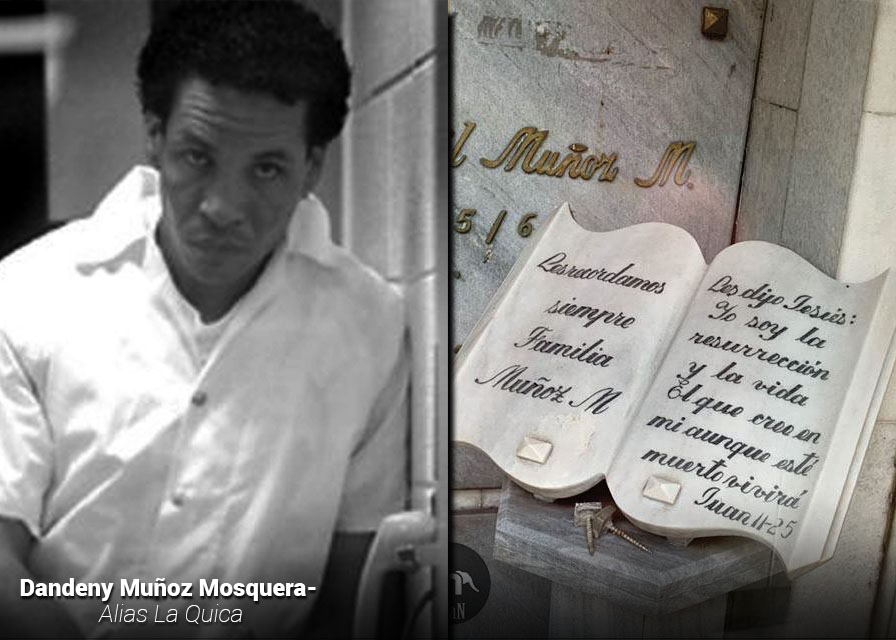 Dandeny Muñoz Mosquera-
Alias La Quica
Muñoz M.
5/6
Les recordamos
siempre
Familia
Muñoz M
Les dijo Jesús:
Yo soy la
resurrección
y la vida
El que cree en
mi aunque esté
muerto vivirá
Juan 11-25